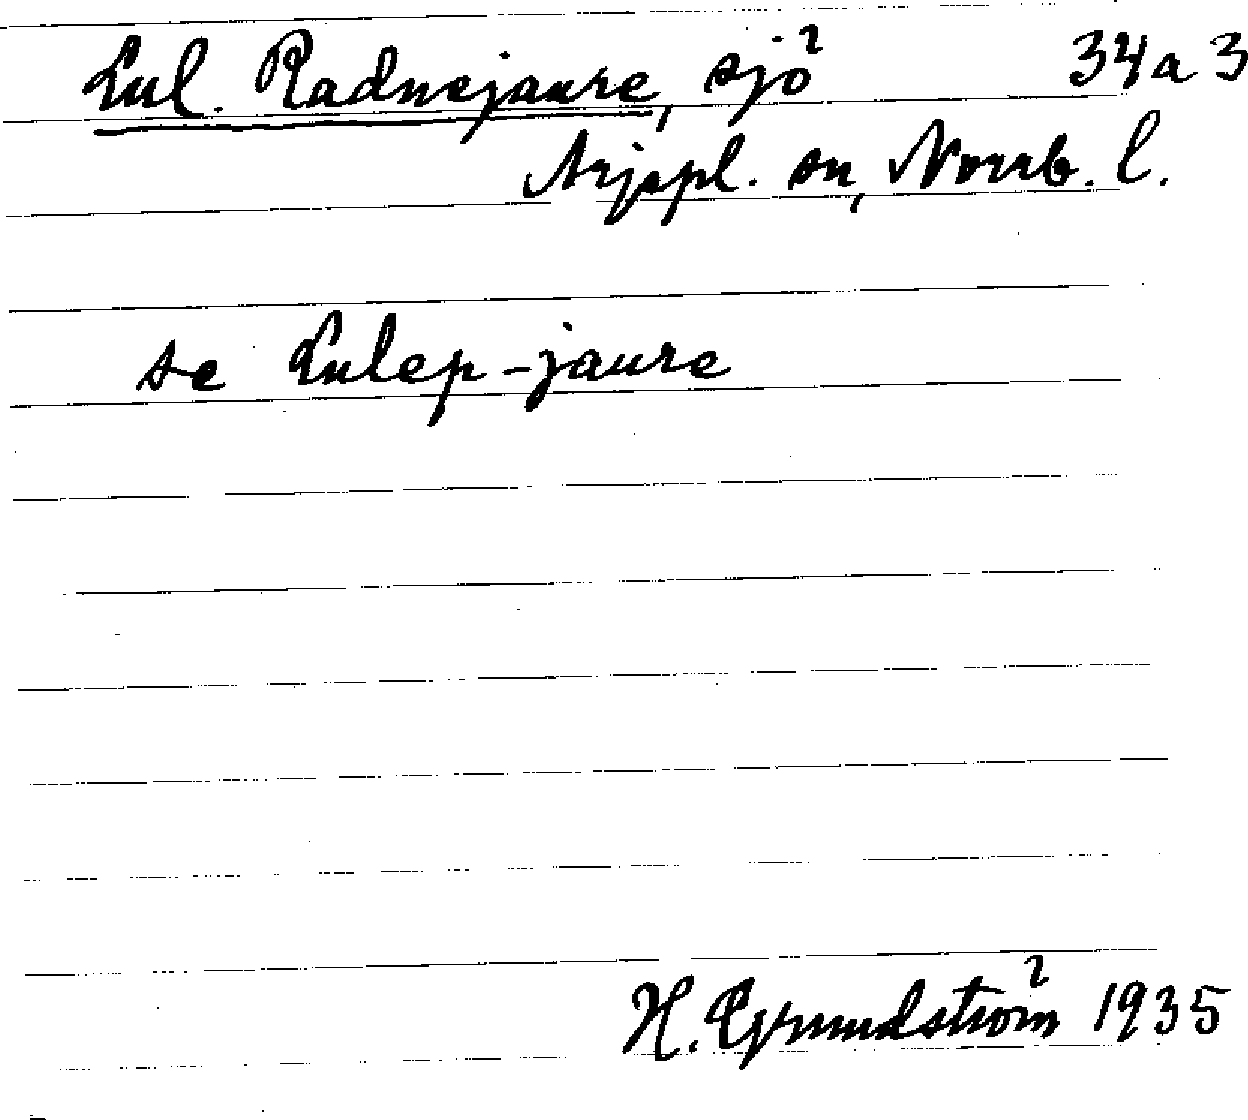 Lul. Radnejaure, sjö 34a3
Arjepl. sn, Norrb. l.
se Lulep-jaure
H. Grundström 1935